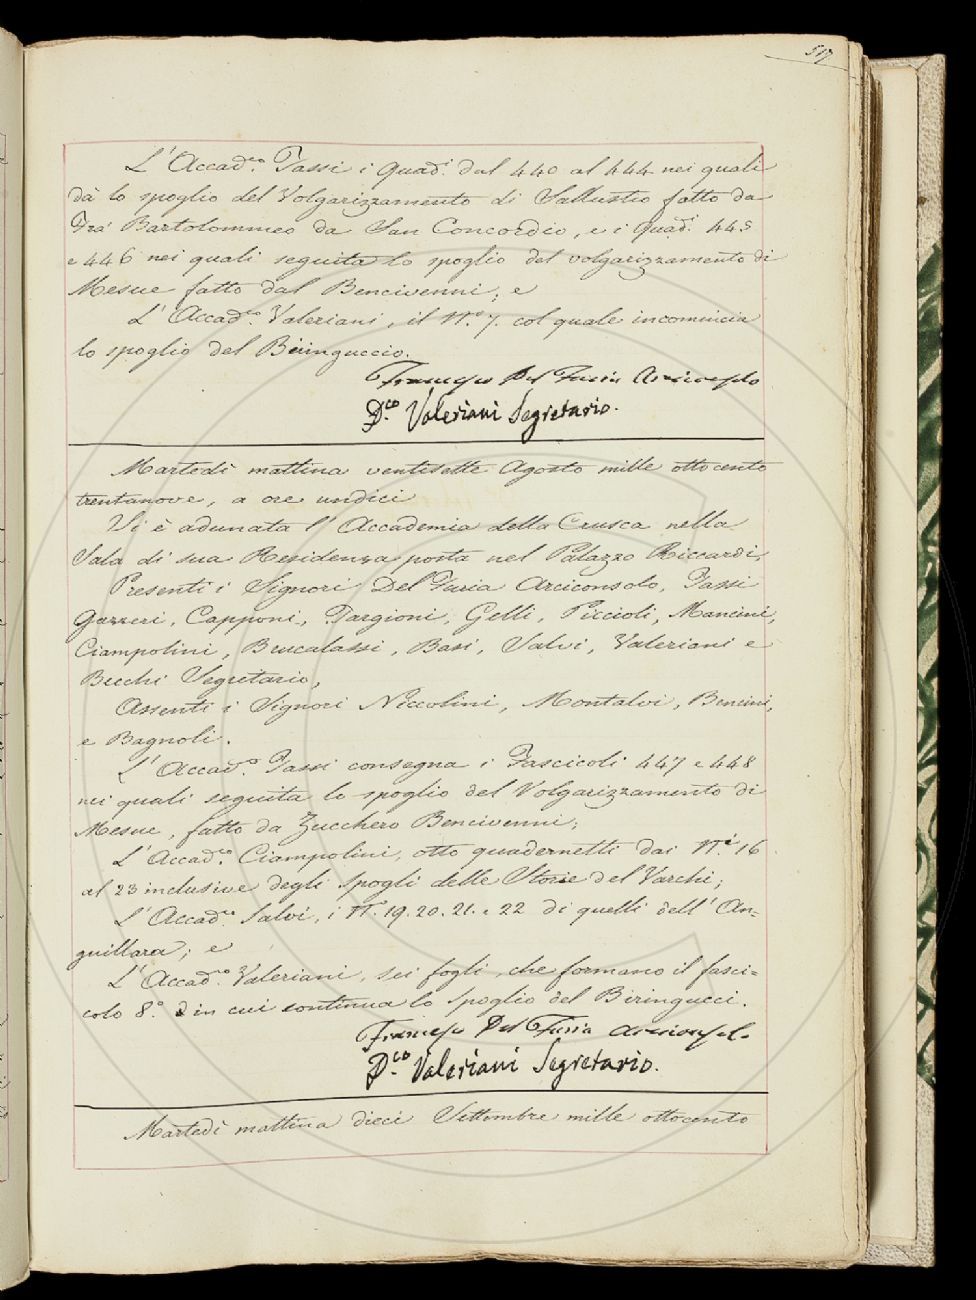 517
L'Accad.co Tassi i Quad.i dal 440 al 444 nei quali
dà lo spoglio del Volgarizzamento di Sallustio fatto da
Fra' Bartolommeo da San Concordio, e i Quad.i 445
e 446 nei quali seguita lo spoglio del volgarizzamento di
Mesue fatto dal Bencivenni; e
L'Accad.co Valeriani, il N.o 7. col quale incomincia
lo spoglio del Biringuccio.
Francesco Del Furia Arciconsolo
D.co Valeriani Segretario.
Martedì mattina ventisette Agosto mille ottocento
trentanove, a ore undici
Si è adunata l'Accademia della Crusca nella
Sala di sua Residenza posta nel Palazzo Riccardi,
Presenti i Signori Del Furia Arciconsolo, Tassi
Gazzeri, Capponi, Targioni, Gelli, Piccioli, Mancini,
Ciampolini, Brucalassi, Basi, Salvi, Valeriani e
Becchi Segretario,
Assenti i Signori Niccolini, Montalvi, Bencini,
e Bagnoli.
L'Accad.co Tassi consegna i Fascicoli 447 e 448
nei quali seguita lo spoglio del Volgarizzamento di
Mesue, fatto da Zucchero Bencivenni;
L'Accad.co Ciampolini, otto quadernetti dai N.i 16
al 23 inclusive degli Spogli delle Storie del Varchi;
L'Accad.co Salvi, i N. 19. 20. 21. e 22 di quelli dell'An=
guillara; e
L'Accad.co Valeriani, sei fogli, che formano il fasci=
colo 8.o in cui continua lo Spoglio del Biringucci.
Francesco Del Furia Arciconsolo
D.co Valeriani Segretario.
Martedì mattina dieci Settembre mille ottocento